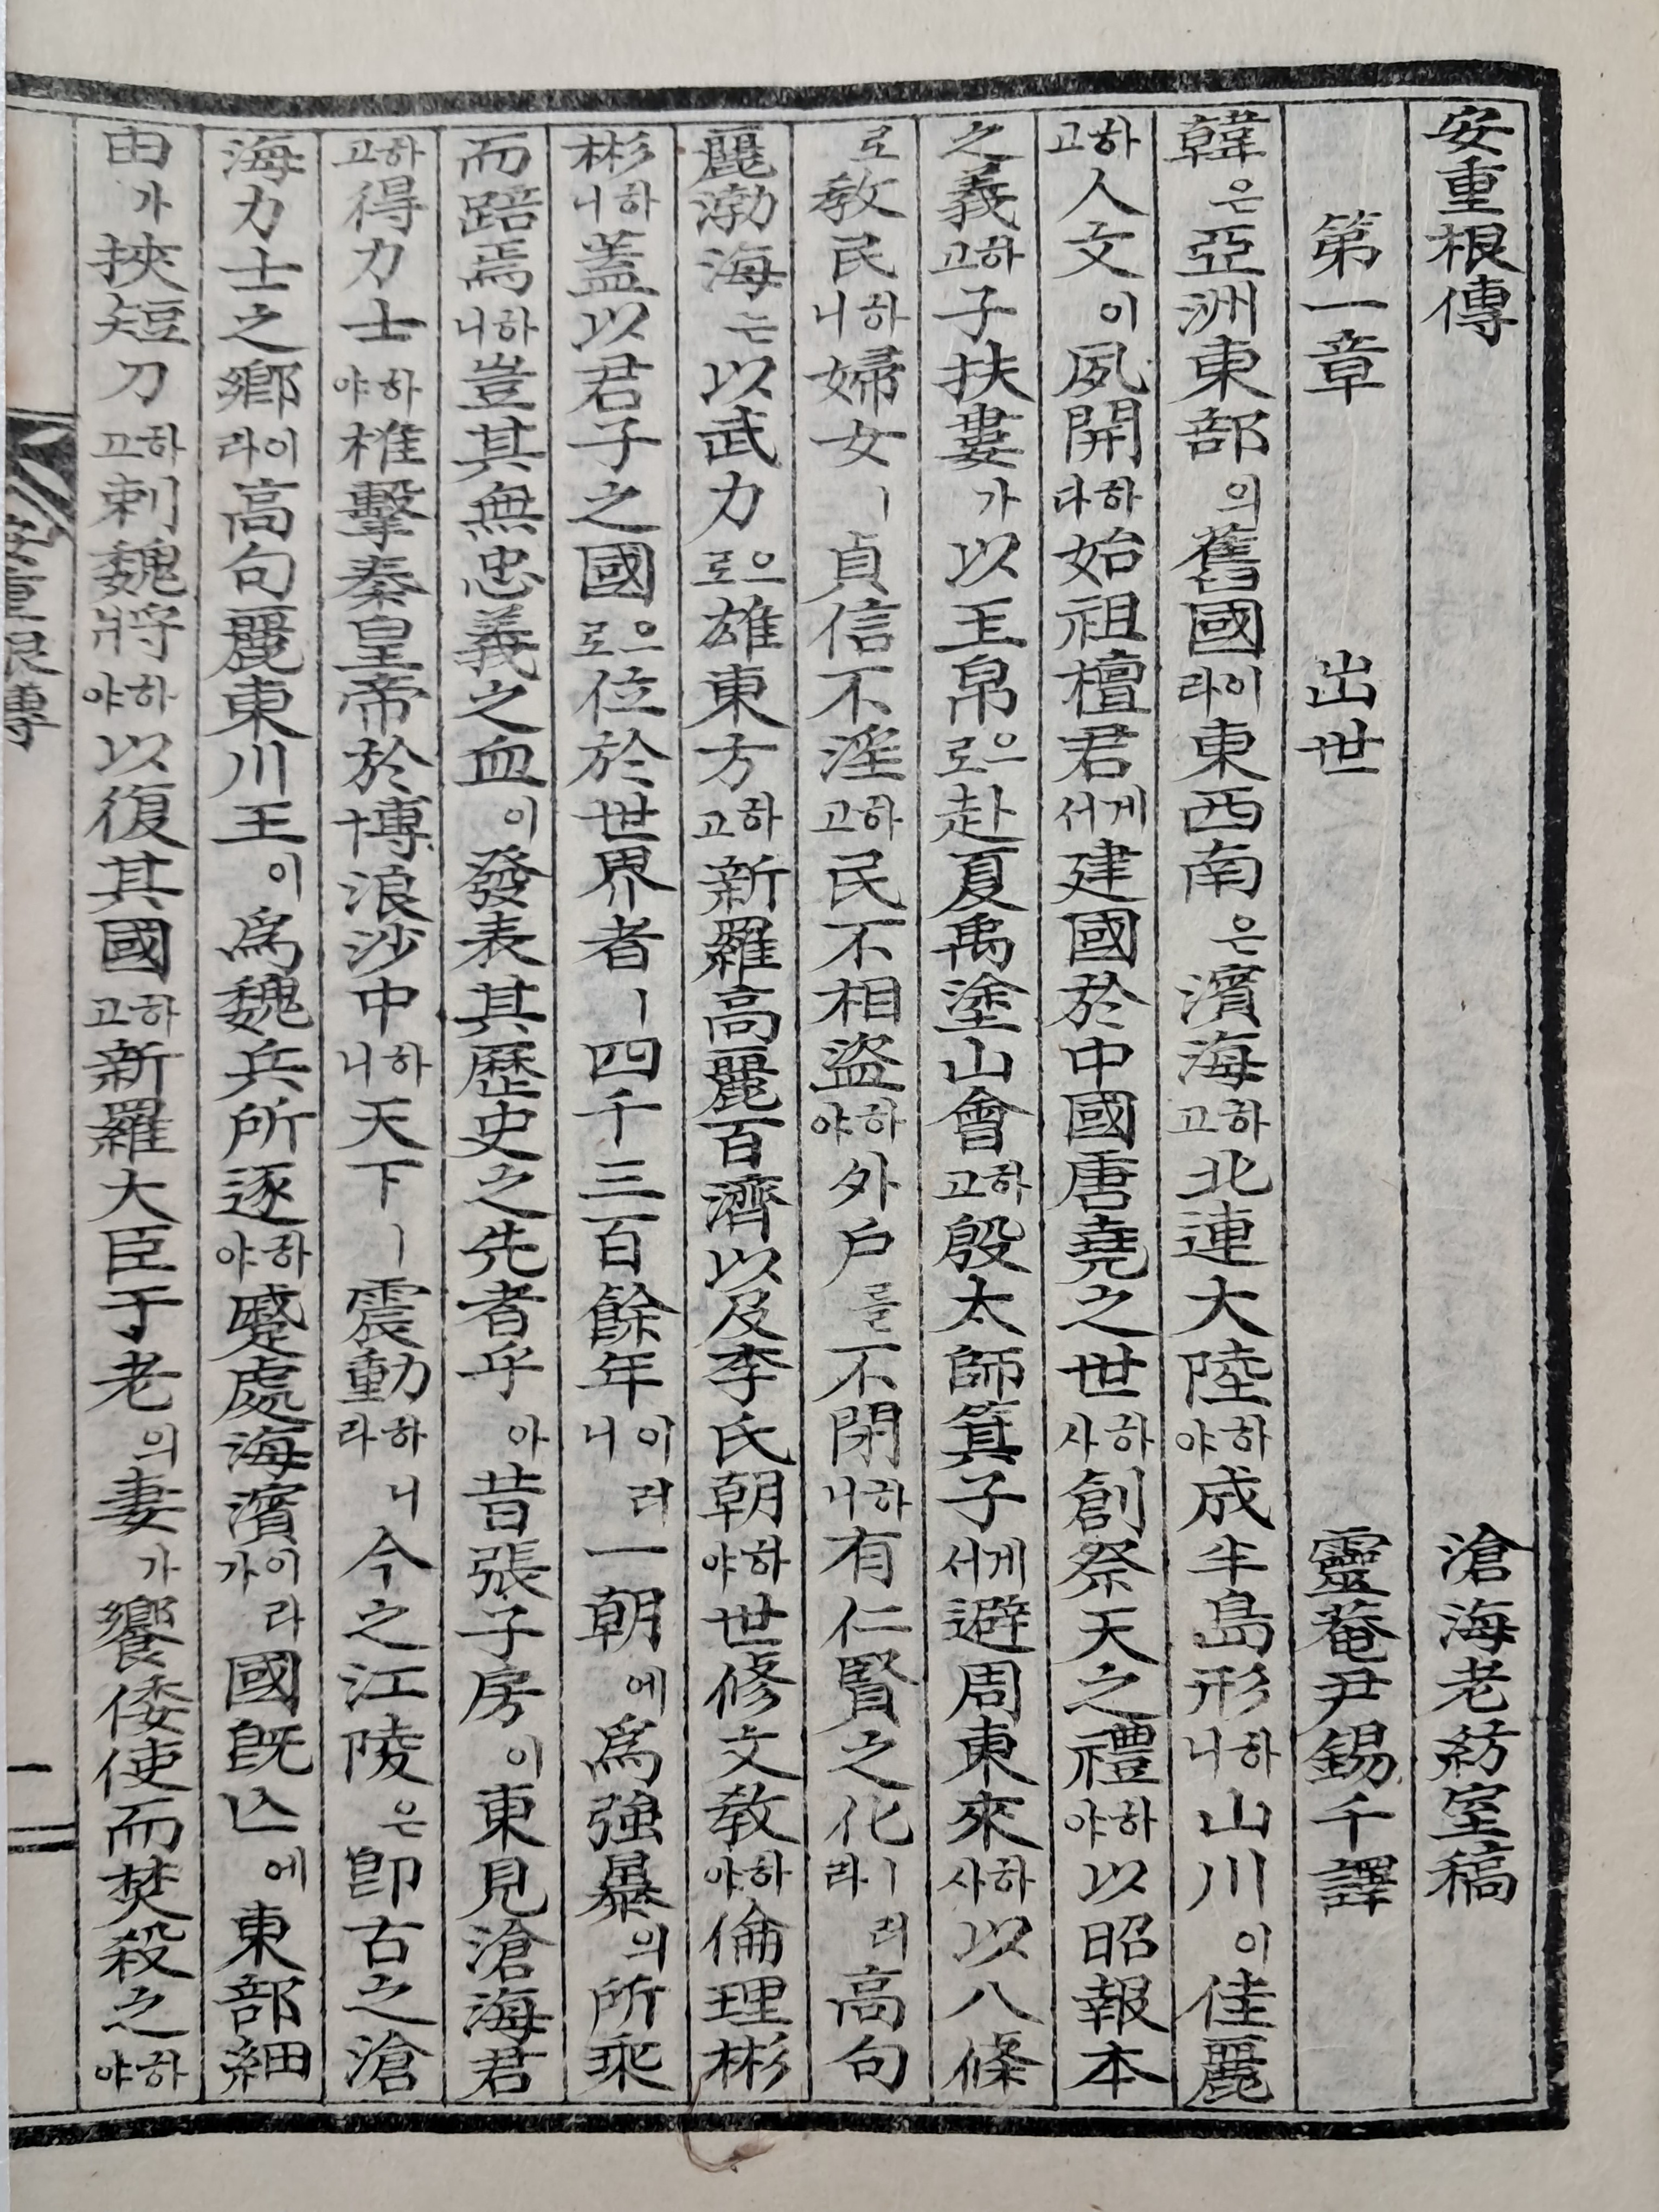 安重根傳 滄海老紡室稿
第一章 出世 靈菴尹錫千譯
韓은亞洲東部의舊國이라東西南은濱海하고北連大陸하야成半島形하니山川이佳麗
하고人文이夙開하다始祖檀君게서建國於中國唐堯之世하사創祭天之禮하야以昭報本
之義하고子扶婁가以王帛으로赴夏禹塗山會하고殷太師箕子게서避周東來하사以八條
로敎民하니婦女ㅣ貞信不淫하고民不相盜하야外戶를不閉하니有仁賢之化ㅣ라러高句
麗渤海는以武力으로雄東方하고新羅高麗百濟以及李氏朝하야世修文敎하야倫理彬
彬하니蓋以君子之國으로位於世界者ㅣ四千三百餘年이니러一朝에爲強暴의所乘
而踣焉하니豈其無忠義之血이發表其歷史之先者乎아昔張子房이東見滄海君
하고得力士하야椎擊秦皇帝於博浪沙中하니天下ㅣ震動하라니今之江陵은卽古之滄
海力士之鄕이라高句麗東川王이爲魏兵所逐하야蹙處海濱이가라國旣亾에東部細
由가挾短刀하고刺魏將하야以復其國하고新羅大臣于老의妻가饗倭使而焚殺之하야
安重根傳
一